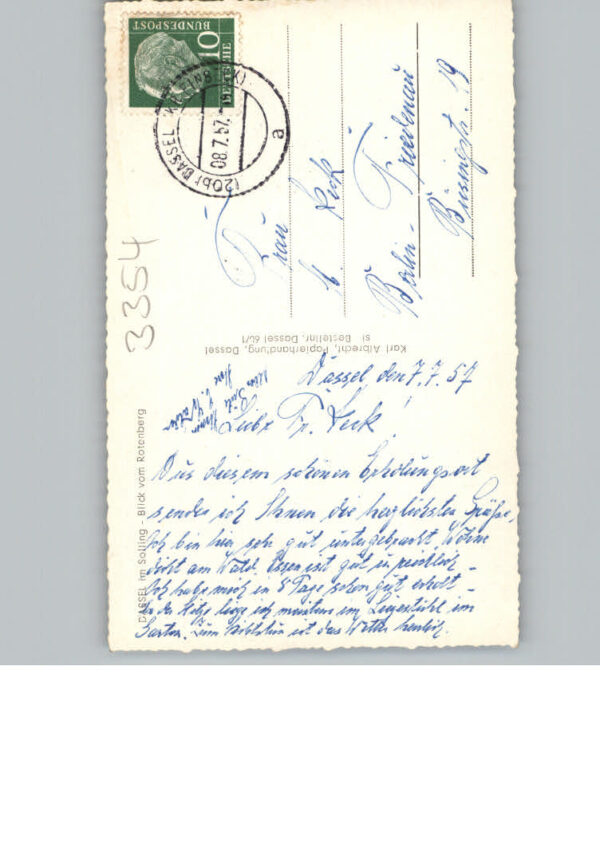 DEUTSCHE
BUNDESPOST
10
(20b) DASSEL (KR. EINBECK)
08.7.57
a
Frau
L. Leck
Berlin-Friedenau
Büsingstr. 19
3354
Karl Albrecht, Papierhandlung, Dassel
Bestellnr. Dassel 60/1
DASSEL im Solling - Blick vom Rotenberg
Dassel, den 7.7.57
Liebe Fr. Leck!
Aus diesem schönen Erholungsort
sende ich Ihnen die herzlichsten Grüße,
Ich bin hier sehr gut untergebracht Wohne
dicht am Wald. Essen ist gut u. reichlich -
Ich habe mich in 8 Tage schon gut erholt -
In der Hitze liege ich meistens im Liegestuhl im
Garten. Zum Nichtstun ist das Wetter herrlich.